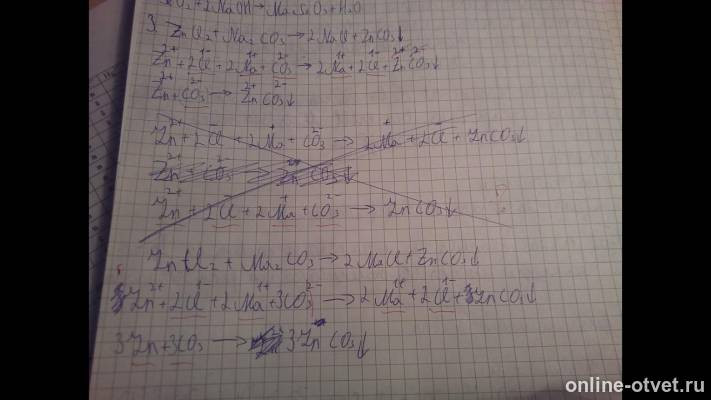 O₃ + 2NaOH → Na₂SiO₃ + H₂O
3. ZnCl₂ + Na₂CO₃ → 2NaCl + ZnCO₃↓
Zn²⁺ + 2Cl¹⁻ + 2Na¹⁺ + CO₃²⁻ → 2Na¹⁺ + 2Cl¹⁻ + Zn²⁺CO₃²⁻↓
Zn²⁺ + CO₃²⁻ → Zn²⁺CO₃²⁻↓
Zn²⁺ + 2Cl⁻ + 2Na⁺ + CO₃²⁻ → 2Na⁺ + 2Cl⁻ + ZnCO₃↓
Zn²⁺ + CO₃²⁻ → ZnCO₃↓
Zn²⁺ + 2Cl⁻ + 2Na⁺ + CO₃²⁻ → ZnCO₃↓
ZnCl₂ + Na₂CO₃ → 2NaCl + ZnCO₃↓
3Zn²⁺ + 2Cl¹⁻ + 2Na¹⁺ + 3CO₃²⁻ → 2Na¹⁺ + 2Cl¹⁻ + 3ZnCO₃↓
3Zn + 3CO₃ → 3ZnCO₃↓
online-otvet.ru